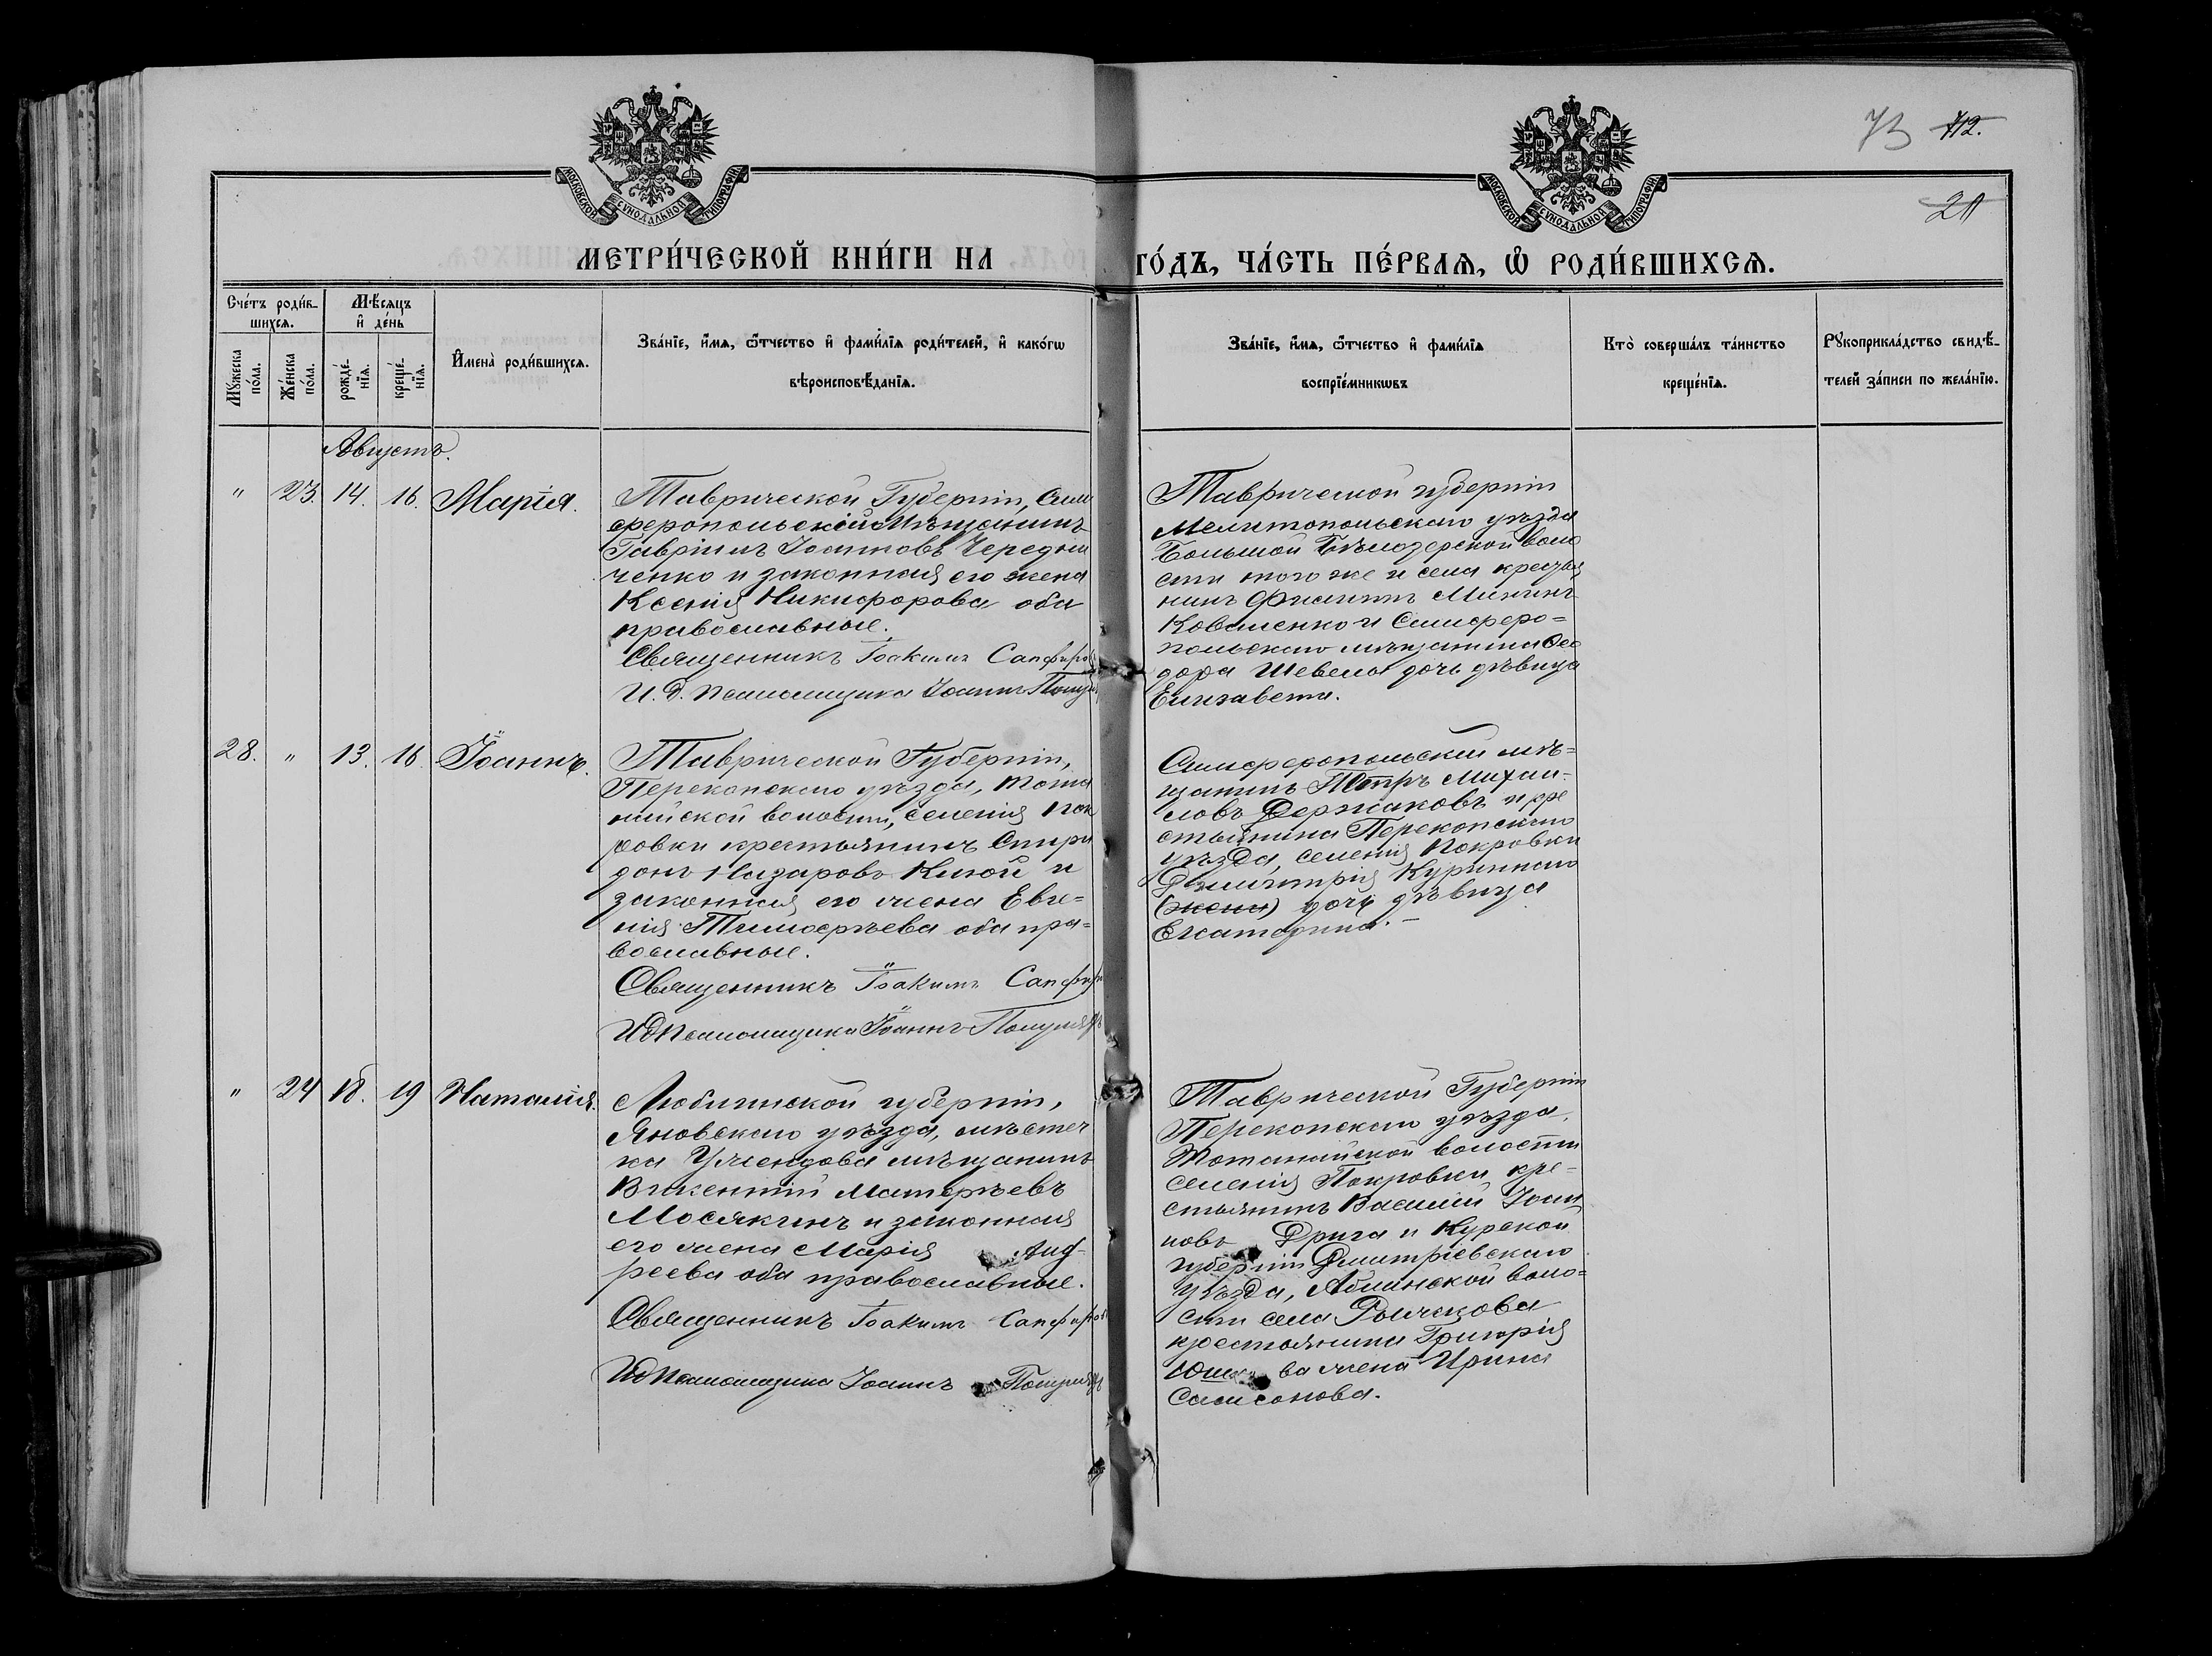 73 712.
21
МОСКОВСКОЙ СѴНОДАЛЬНОЙ ТИПОГРАФІИ
МОСКОВСКОЙ СѴНОДАЛЬНОЙ ТИПОГРАФІИ
МЕТРИ́ЧЕСКОЙ КНИ́ГИ НА ГО́ДЪ, ЧА́СТЬ ПЕ́РВАѦ, Ѡ҆ РОДИ́ВШИХСѦ.
Сче́тъ роди́в-
шихсѧ.
Мѣ́сѧцъ
и҆ де́нь
Мꙋ́жеска по́ла.
Же́нска по́ла.
рожде́-нїѧ.
креще́-нїѧ.
И҆мена̀ роди́вшихсѧ.
Зва́нїе, и҆́мѧ, ѻ҆́тчество и҆ фами́лїѧ роди́телей, и҆ како́гѡ
вѣроисповѣ́данїѧ.
Зва́нїе, и҆́мѧ, ѻ҆́тчество и҆ фами́лїѧ
воспрїе́мникѡвъ
Кто̀ соверша́лъ та́инство
креще́нїѧ.
Рꙋкоприкла́дство свидѣ́-
телей за́писи по жела́нїю.
Августъ.
" 23. 14. 16. Марія.
Таврической Губерніи, Сим
феропольскій мѣщанинъ
Гавріилъ Іоанновъ Чередни
ченко и законная его жена
Ксенія Никифорова оба
православные.
Священникъ Іоакимъ Сапфиров
И. д. псаломщика Іоаннъ
Таврической губерніи
Мелитопольскаго уѣзда
Большой Бѣлозерской воло
сти того же и села крестья
нинъ Филиппъ Мининъ
Коваленко и Симферо=
польскаго мѣщанина Ѳео
дора Шевела дочь дѣвица
Елизавета.
28. " 13. 16. Іоаннъ.
Таврической Губерніи,
Перекопскаго уѣзда,
волости, селенія Пок
ровки крестьянинъ Спири
донъ Назаровъ и
законная его жена Евге=
нія Тимоѳеева оба пра=
вославные.
Священникъ Іоакимъ Сапфир
И д псаломщика Іоаннъ
Симферопольскій мѣ=
щанинъ Петръ Михаи-
ловъ Держаковъ и кре
стьянина Перекопскаго
уѣзда, селенія Покровки
Димитрія Куриннаго
(жена) дочь дѣвица
Екатерина. -
" 24 18. 19 Наталія.
Люблинской губерніи,
Яновскаго уѣзда, мѣстеч
ка мѣщанинъ
Викентій Матѳеевъ
Мосякинъ и законная
его жена Марія Анд-
реева оба православные.
Священникъ Іоакимъ Сапфиров
И д псаломщика Іоаннъ
Таврической Губерніи
Перекопскаго уѣзда,
волости
селенія Покровки кре-
стьянинъ Василій Іоан
новъ Дрига и Курской
губерніи Дмитріевскаго
уѣзда, воло=
сти села
крестьянина Григорія
жена Ирина
Самсонова.